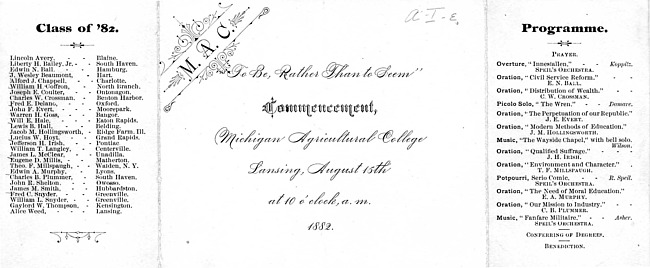 Class of '82.
Lincoln Avery, - - Elaine.
Liberty H. Bailey, Jr. - South Haven.
Edwin N. Ball, - - Hamburg.
J. Wesley Beaumont, - Hart.
Alford J. Chappell, - Charlotte.
William H. Coffron, - North Branch.
Joseph E. Coulter, - Ontonagon.
Charles W. Crossman, Benton Harbor.
Fred E. Delano, - Oxford.
John F. Evert, - - Moorepark.
Warren H. Goss, - Bangor.
Will E. Hale, - - Eaton Rapids.
Lewis B. Hall, - - Belding.
Jacob M. Hollingsworth, - Ridge Farm, Ill.
Lucius W. Hoyt, - Grand Rapids.
Jefferson H. Irish, - Pontiac
William T. Langley, - Centerville.
James L. McClear, - Unadilla.
Eugene D. Millis, - Matherton.
Theo. F. Millspaugh, - Walden, N. Y.
Edwin A. Murphy, - Lyons.
Charles B. Plummer, - South Haven.
John R. Shelton, - Owosso.
James M. Smith, - Hubbardston.
Fred C. Snyder, - - Greenville.
William L. Snyder, - Greenville.
Gaylord W. Thompson, - Kensington.
Alice Weed, - - Lansing.
A-I-E.
M.A.C.
"To Be, Rather Than to Seem"
Commencement,
Michigan Agricultural College
Lansing, August 15th
at 10 o'clock, a.m.
1882.
Programme.
PRAYER.
Overture, "Innesfallen," - - Koppitz.
SPEIL'S ORCHESTRA.
Oration, "Civil Service Reform," - -
E. N. BALL.
Oration, "Distribution of Wealth." - -
C. W. CROSSMAN.
Picolo Solo, "The Wren," - Damare.
Oration, "The Perpetuation of our Republic."
J. E. EVERT.
Oration, "Modern Methods of Education."
J. M. HOLLINGSWORTH.
Music, "The Wayside Chapel," with bell solo.
Wilson.
Oration, "Qualified Suffrage," - -
J. H. IRISH.
Oration, "Environment and Character." -
T. F. MILLSPAUGH.
Potpourri, Serio Comic, - - R. Speil.
SPEIL'S ORCHESTRA.
Oration, "The Need of Moral Education."
E. A. MURPHY.
Oration, "Our Mission to Industry," - -
C. B. PLUMMER.
Music, "Fanfare Militaire," - - Asher.
SPEIL'S ORCHESTRA.
CONFERRING OF DEGREES.
BENEDICTION.